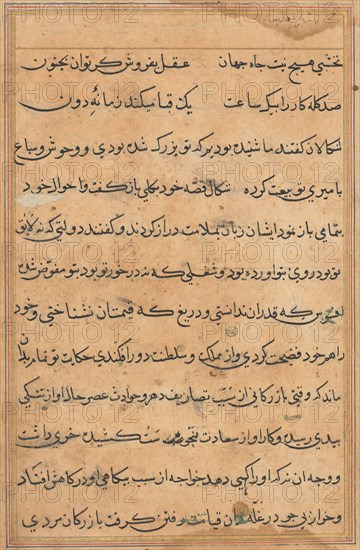 نخشبی هیچ نیست جاه جهان عقل بفروش گر توان بجنون
صد کله کار را بیک ساعت یک قبا میکند زمانهٔ دون
شکالان گفتند ما شنیده بودیم که تو بزرک شده بودی و وحوش و سباع
با میری تو بیعت کرده شکال قصه خود بکلی باز گفت و احوال خود
بتمامی باز نمود ایشان زبان بملامت دراز کردند و گفتند دولتی که نه لایق
تو بود روی بتو آورده بود و شغلی که نه در خور تو بود بتو مفوض شده
افسوس که قدر آن ندانستی و دریغ که قیمت آن نشناختی و خود
را هم خود فضیحت کردی و از مملکت و سلطنت دور افکندی حکایت تو تمام بدان
ماند که وقتی بازرکانی از سبب تصاریف دهر و حوادث عصر حال او از تنگی
ببدی رسید و کار او از سعادت بنحوست کشید خری داشت
و وجه آن نه که او را کهی دهد خواجه از سبب بیکاهی او در کاهش افتاد
و خر از بی جو در غله آن قیامت رفتن گرفت بازرکان مردی